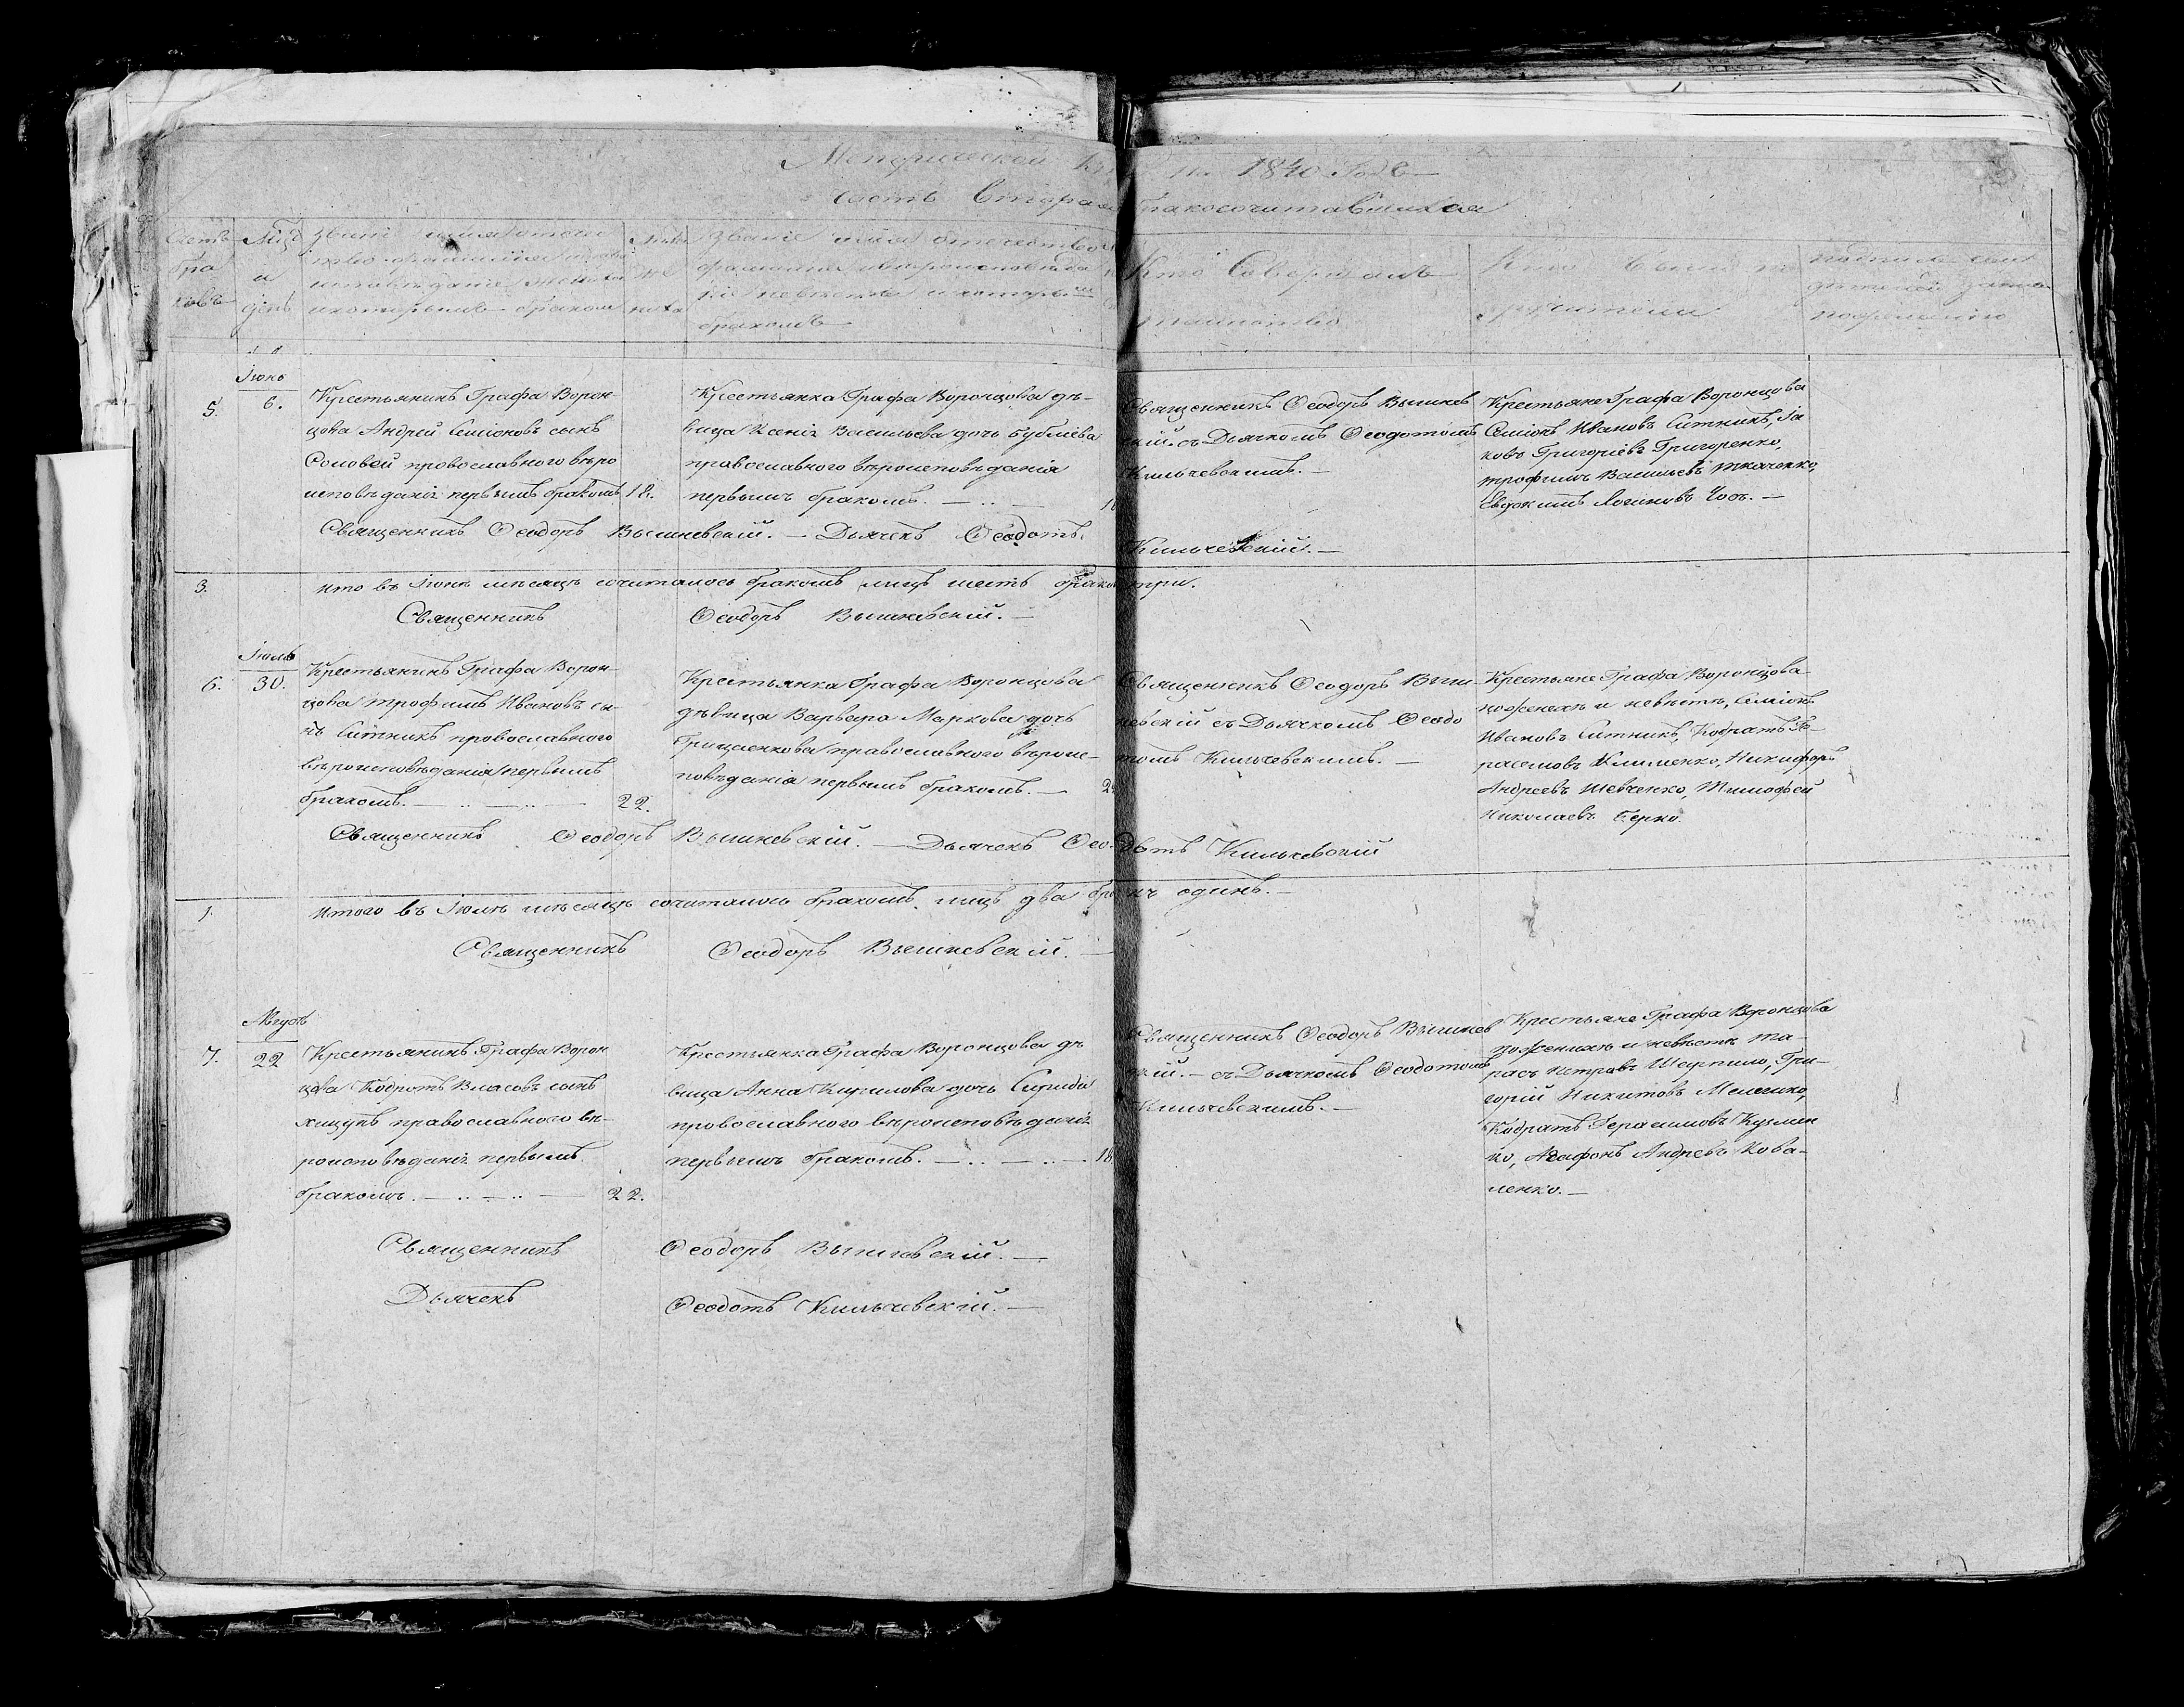 Метрической на 1840 Годъ
Часть Вторая бракосочитавшихся
Счетъ бра ковъ
Мцъ и день
званіе имя отече
ство фамилія
исповѣданіе жениха
и которымъ бракомъ
званіе имя отечество
фамилія и вѣроисповѣда
ніе невѣсты и которымъ
бракомъ
Кто Совершалъ
таинство
Кто были по
ручители
подпись сви
дѣтелей
5.
Іюнь
6.
Крестьянинъ Графа Ворон-
цова Андрей Семіоновъ сынъ
Соловей провославного вѣро
исповѣданія первымъ бракомъ
18.
Крестьянка Графа Воронцова дѣ-
вица Ксенія Васильева дочь Бублієва
православного вѣроисповѣданія
первымъ бракомъ.
Священникъ Ѳеодоръ Вышнев
скій. съ Дьячкомъ Ѳеодотомъ
Кильчевскимъ. —
Крестьяне Графа Воронцова
Семіонъ Ивановъ Ситникъ, Іа
ковъ Григоріевъ Григоренко,
трофимъ Васильевъ ткаченко,
Евдокимъ Логиновъ Чобъ. —
Священникъ Ѳеодоръ Вышневскій. — Дьячекъ Ѳеодотъ Кильчевскій. —
3.
итого въ Іюнѣ мѣсяцѣ сочиталось бракомъ лицъ шесть браковъ три.
Священникъ Ѳеодоръ Вышневскій. —
6.
Іюль
30.
Крестьянинъ Графа Ворон-
цова трофимъ Ивановъ сы-
нъ Ситникъ провославного
вѣроисповѣданія первымъ
бракомъ.
22.
Крестьянка Графа Воронцова
дѣвица Варвара Маркова дочь
Грищенкова православного вѣроис-
повѣданія первымъ бракомъ. —
Священникъ Ѳеодоръ Выш-
невскій съ Дьячкомъ Ѳеодо
томъ Кильчевскимъ. —
Крестьяне Графа Воронцова
по женихѣ и невѣстѣ, Семіонъ
Ивановъ Ситникъ, Кодратъ Ге-
расимовъ Клименко, Никифоръ
Андреевъ Шевченко, Тимофей
Николаевъ Берко.
Священникъ Ѳеодоръ Вышневскій. — Дьячекъ Ѳеодотъ Кильчевскій
1.
итого въ Іюлѣ мѣсяцѣ сочиталось бракомъ лицъ два бракъ одинъ. —
Священникъ Ѳеодоръ Вышневскій. —
7.
Августъ
22
Крестьянинъ Графа Ворон
цова Кодратъ Власовъ сынъ
хищукъ православного вѣ-
роисповѣданія первымъ
бракомъ.
22.
Крестьянка Графа Воронцова дѣ
вица Анна Кирилова дочь
провославного вѣроисповѣданія
первымъ бракомъ.
18
Священникъ Ѳеодоръ Вышнев
скій. — съ Дьячкомъ Ѳеодотомъ
Кильчевскимъ. —
Крестьяне Графа Воронцова
по женихѣ и невѣстѣ та-
расъ Петровъ Шерпило, Гри-
горій Никитовъ Мележко,
Кодратъ Герасимовъ Кузмен
ко, Агафонъ Андреевъ Кова-
ленко. —
Священникъ Ѳеодоръ Вышневскій. —
Дьячекъ Ѳеодотъ Кильчевскій. —